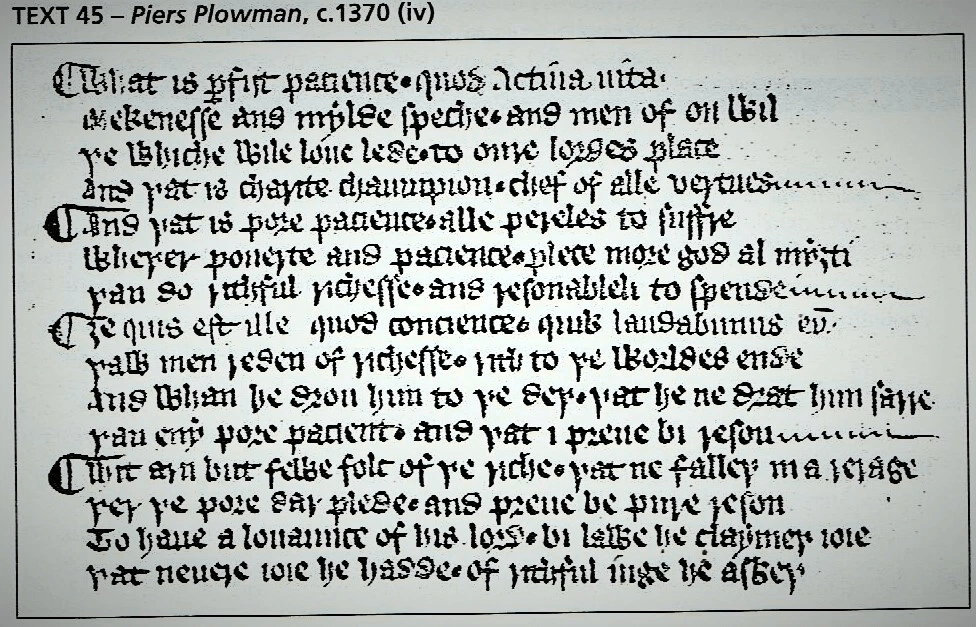 TEXT 45 – Piers Plowman, c.1370 (iv)
What is pfiyt pacience · quod Actiua uita·
Mekenesse and mylde speche · and men of on wil
þe whiche wile loue lede · to oure lordes place
And þat is charite chaumpion · chef of alle vertues
And þat is pore pacience · alle pereles to suffre
Wheþer pouerte and pacience · plece more god al myȝti
þan do rithful richesse · and resonableli to spende
Ȝe quis est ille quod concience · quik laudabimus eū·
þaw men reden of richesse · rith to þe worldes ende
And whan he drou him to þe deþ · þat he ne drat him sarre
þan eny pore pacient · and þat i preue bi resoun
Wit arn but fewe folc of þe riche · þat ne falleþ in a rerage
þer þe pore dar plede · and preue be pure resoun
To haue a louaunce of his lord · bi lawe he claymeþ ioie
þat neuere ioie he hadde · of rithful iuge he askeþ